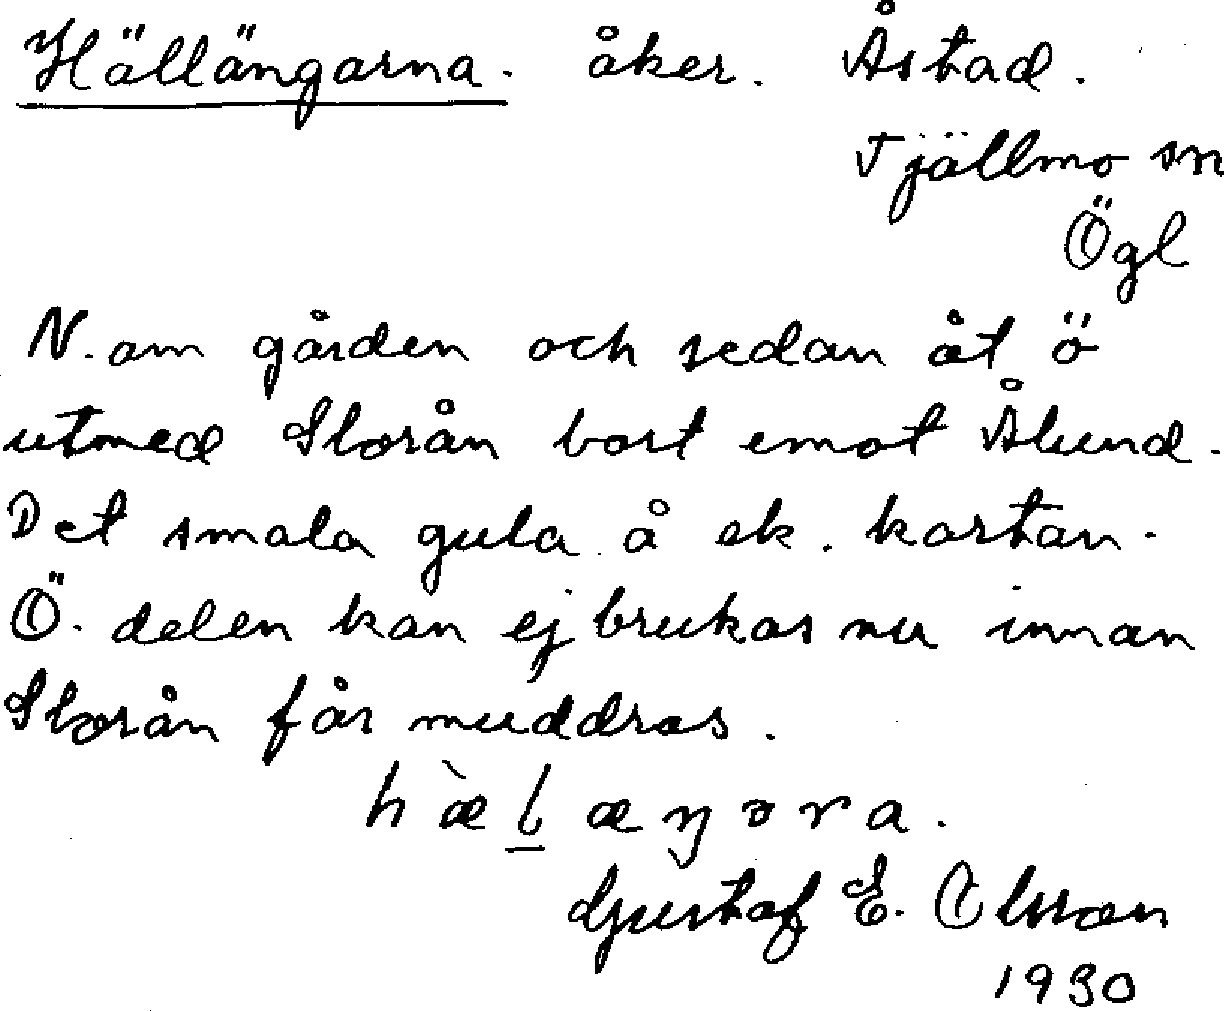 Hällängarna. åker. Åstad.
Tjällmo sn
Ögl
N. om gården och sedan åt ö
utmed Storån bort emot Ålund.
Det smala gula å ek. kartan.
Ö. delen kan ej brukas nu innan
Storån får muddras.
hæ̀ḻæŋɔra.
Gustaf E. Olsson
1930